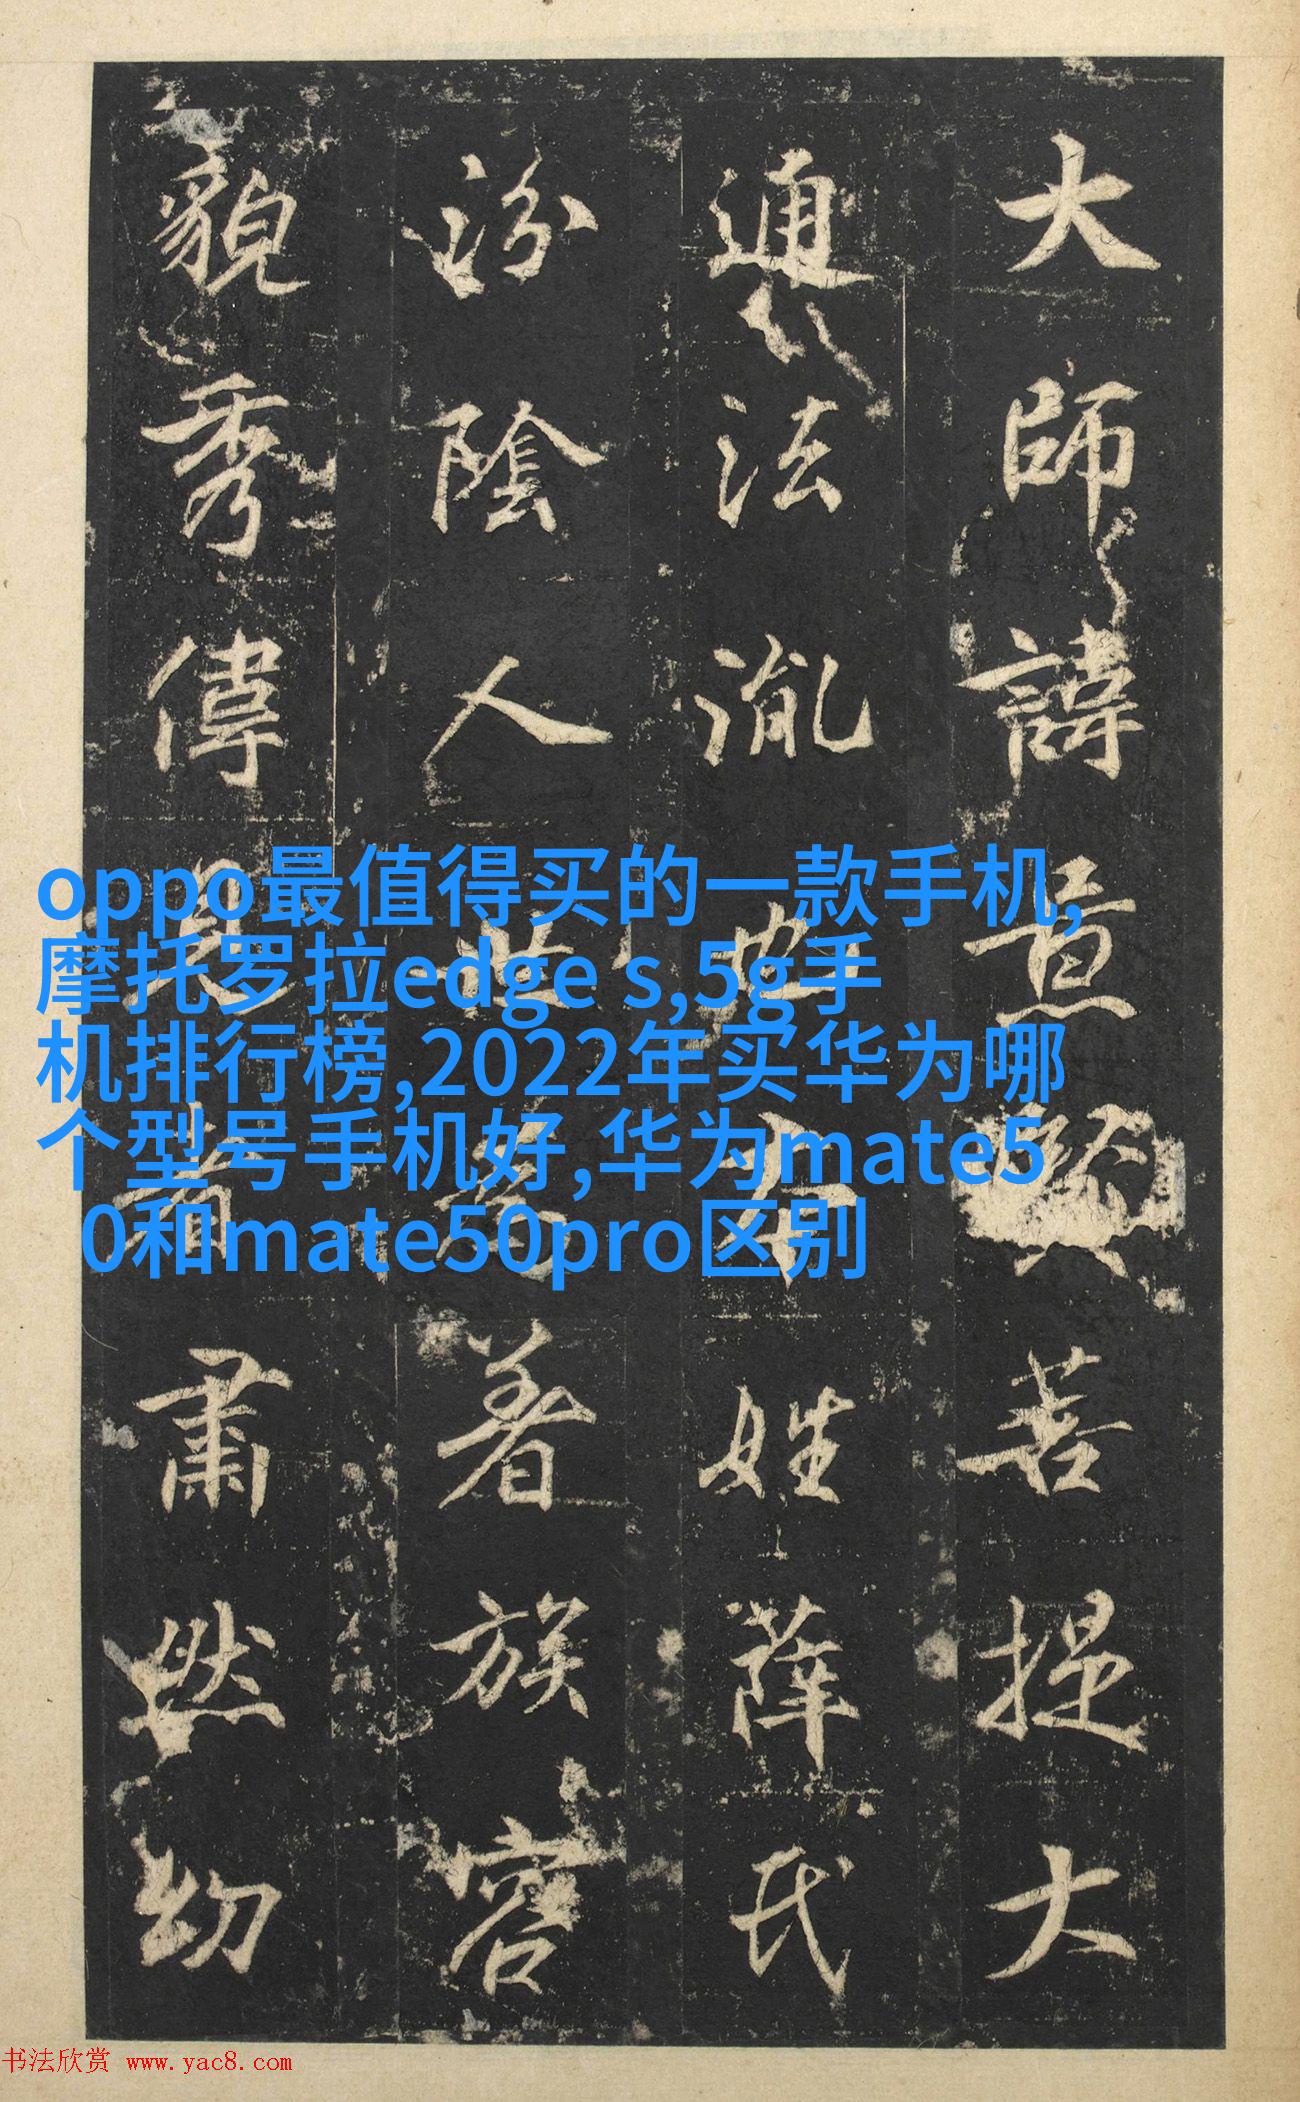 大師諱菩提大
通法姓薛氏
汾陰人世為著族容
貌秀偉見者肅然幼
oppo最值得买的一款手机,
摩托罗拉edge s,5g手
机排行榜,2022年买华为哪
个型号手机好,华为mate5
0和mate50pro区别
书法欣赏 www.yac8.com